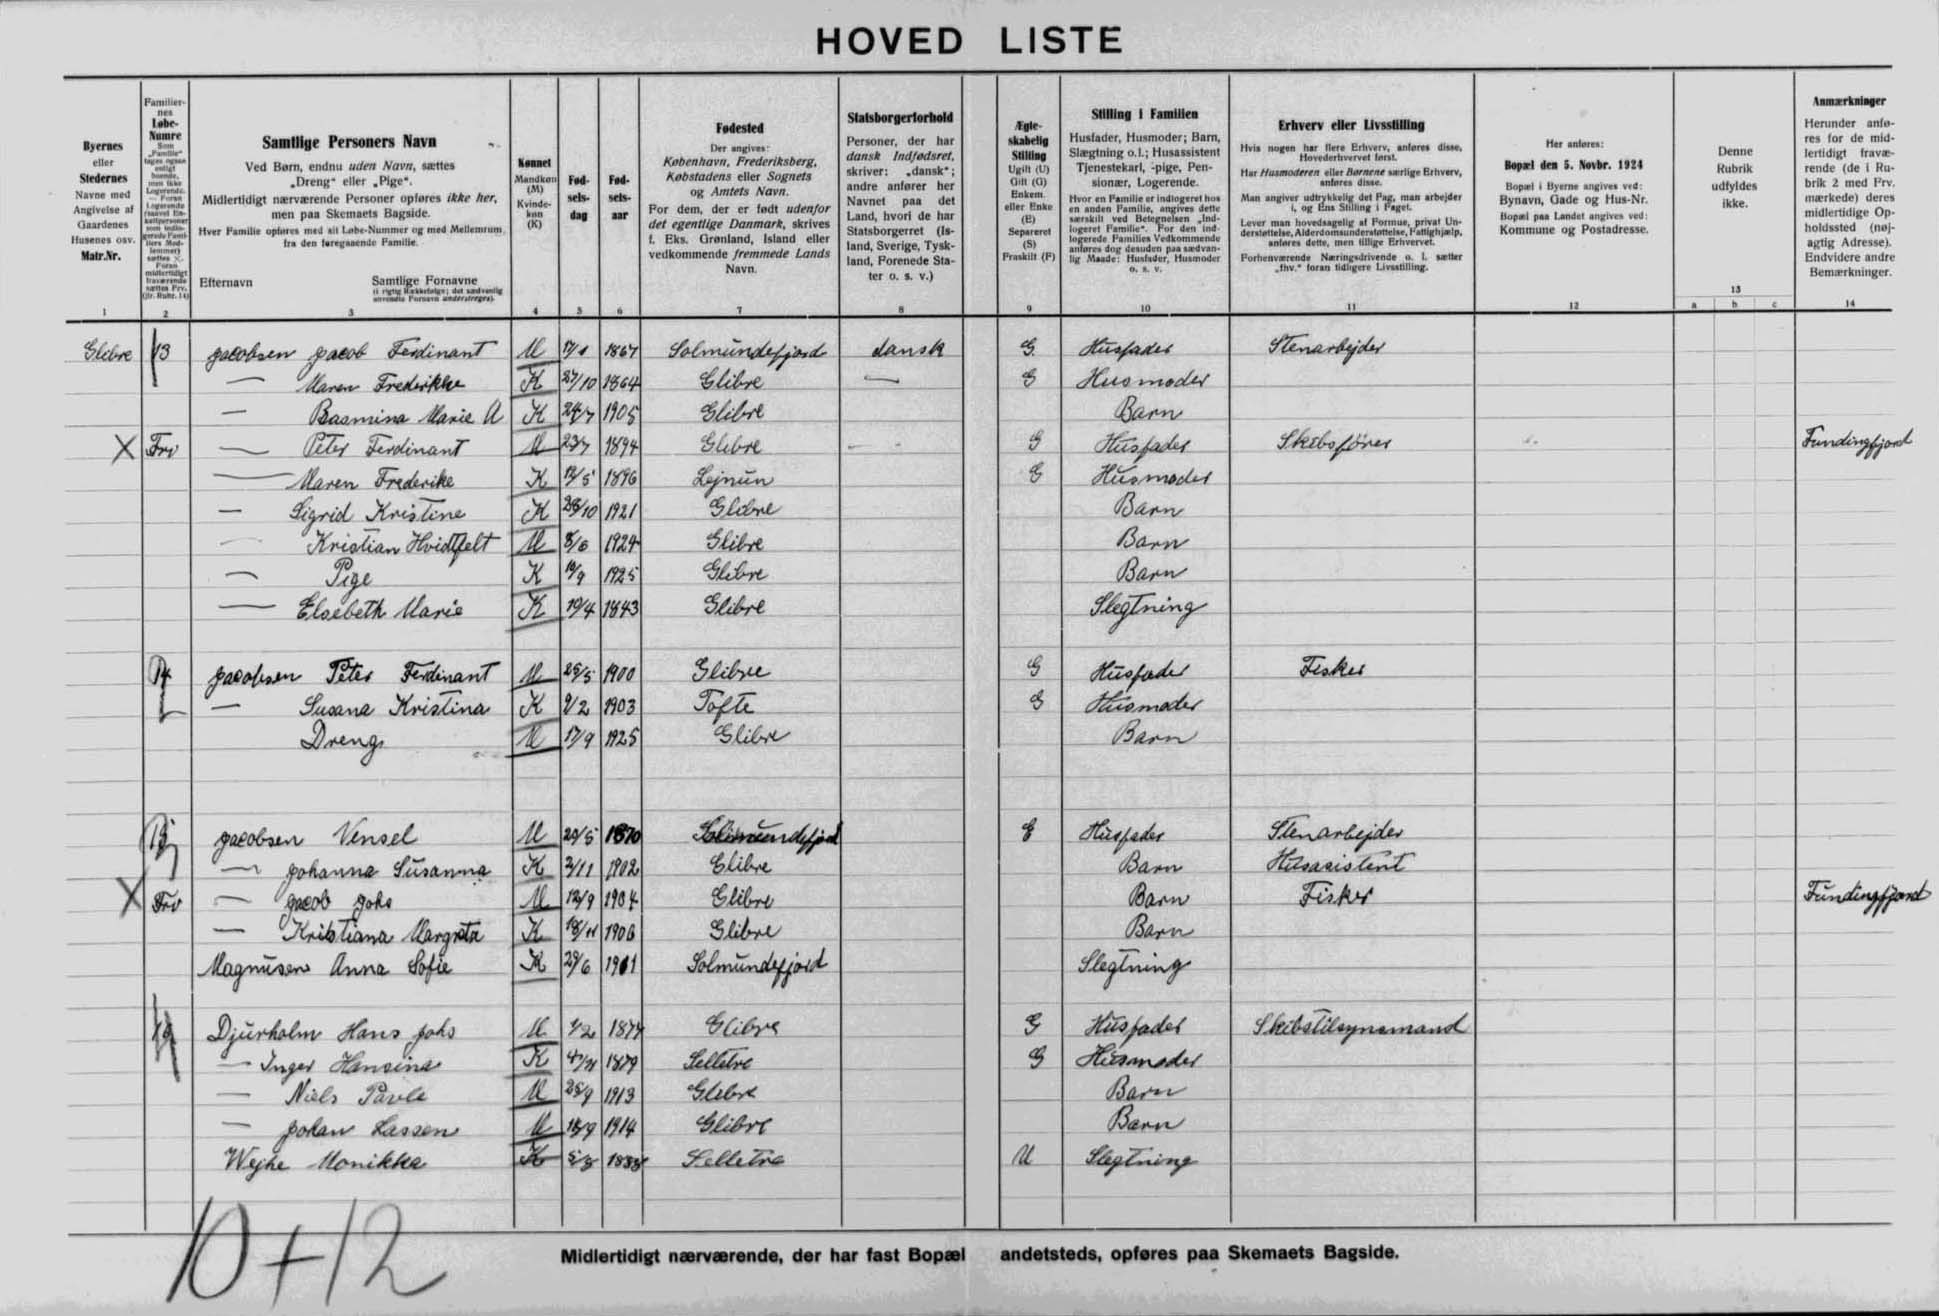 HOVED LISTE
Byernes eller Stedernes Navne med Angivelse af Gaardenes Husenes osv. Matr.Nr.
Familiernes Løbe-Numre
Samtlige Personers Navn
Ved Børn, endnu uden Navn, sættes „Dreng“ eller „Pige“.
Midlertidigt nærværende Personer opføres ikke her, men paa Skemaets Bagside.
Hver Familie opføres med sit Løbe-Nummer og med Mellemrum fra den foregaaende Familie.
Efternavn Samtlige Fornavne
(i rigtig Rækkefølge; det sædvanlig anvendte Fornavn understreges).
Kønnet Mandkøn (M) Kvindekøn (K)
Fødselsdag
Fødselsaar
Fødested
Der angives: København, Frederiksberg, Købstadens eller Sognets og Amtets Navn.
For dem, der er født udenfor det egentlige Danmark, skrives f. Eks. Grønland, Island eller vedkommende fremmede Lands Navn.
Statsborgerforhold
Personer, der har dansk Indfødsret, skriver: „dansk“; andre anfører her Navnet paa det Land, hvori de har Statsborgerret (Island, Sverige, Tyskland, Forenede Stater o. s. v.)
Ægteskabelig Stilling Ugift (U) Gift (G) Enkem. eller Enke (E) Separeret (S) Fraskilt (F)
Stilling i Familien
Husfader, Husmoder; Barn, Slægtning o.l.; Husassistent Tjenestekarl, -pige, Pensionær, Logerende.
Hvor en Familie er indlogeret hos en anden Familie, angives dette særskilt ved Betegnelsen „Indlogeret Familie“. For den indlogerede Families Vedkommende anføres dog desuden paa sædvanlig Maade: Husfader, Husmoder o. s. v.
Erhverv eller Livsstilling
Hvis nogen har flere Erhverv, anføres disse, Hovederhvervet først.
Har Husmoderen eller Børnene særlige Erhverv, anføres disse.
Man angiver udtrykkelig det Fag, man arbejder i, og Ens Stilling i Faget.
Lever man hovedsagelig af Formue, privat Understøttelse, Alderdomsunderstøttelse, Fattighjælp, anføres dette, men tillige Erhvervet.
Forhenværende Næringsdrivende o. l. sætter „fhv.“ foran tidligere Livsstilling.
Her anføres: Bopæl den 5. Novbr. 1924
Bopæl i Byerne angives ved: Bynavn, Gade og Hus-Nr.
Bopæl paa Landet angives ved: Kommune og Postadresse.
Denne Rubrik udfyldes ikke.
Anmærkninger
Herunder anføres for de midlertidigt fraværende (de i Rubrik 2 med Frv. mærkede) deres midlertidige Opholdssted (nøjagtig Adresse). Endvidere andre Bemærkninger.
1 2 3 4 5 6 7 8 9 10 11 12 13 a b c 14
Glibre 13 Jacobsen Jacob Ferdinant M 17/1 1867 Solmundefjord dansk G. Husfader Stenarbejder
— Maren Frederikke K 27/10 1864 Glibre — G Husmoder
— Rasmina Marie A K 24/7 1905 Glibre Barn
X Frv — Peter Ferdinant M 23/7 1894 Glibre — G Husfader Skibsfører Fundingfjord
— Maren Frederike K 13/5 1896 Lejnun G Husmoder
— Sigrid Kristine K 28/10 1921 Glibre Barn
— Kristian Hvidtfelt M 8/6 1924 Glibre Barn
— Pige K 10/9 1925 Glibre Barn
— Elsebeth Marie K 19/4 1843 Glibre Slegtning
14 Jacobsen Peter Ferdinant M 25/5 1900 Glibre G Husfader Fisker
— Susana Kristina K 9/2 1903 Tofte G Husmoder
Dreng M 17/9 1925 Glibre Barn
15 Jacobsen Vensel M 29/5 1870 Solmundefjord E Husfader Stenarbejder
— Johanna Susanna K 2/11 1902 Glibre Barn Husasistent
X Frv — Jacob Johs M 12/9 1904 Glibre Barn Fisker Fundingfjord
— Kristiana Margreta K 18/11 1906 Glibre Barn
Magnusen Anna Sofie K 29/6 1901 Solmundefjord Slegtning
Djurholm Hans Johs M 1/2 1874 Glibre G Husfader Skibstilsynsmand
— Inger Hansina K 1879 Selletre G Husmoder
— Niels Pavle M 25/9 1913 Glibre Barn
— Johan Lassen M 1914 Glibre Barn
Wejhe Monikka K Selletre U Slegtning
10+12
Midlertidigt nærværende, der har fast Bopæl andetsteds, opføres paa Skemaets Bagside.